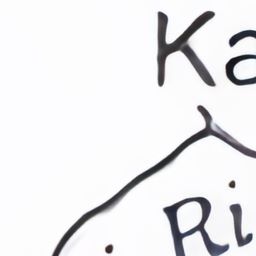 Ka
Ri